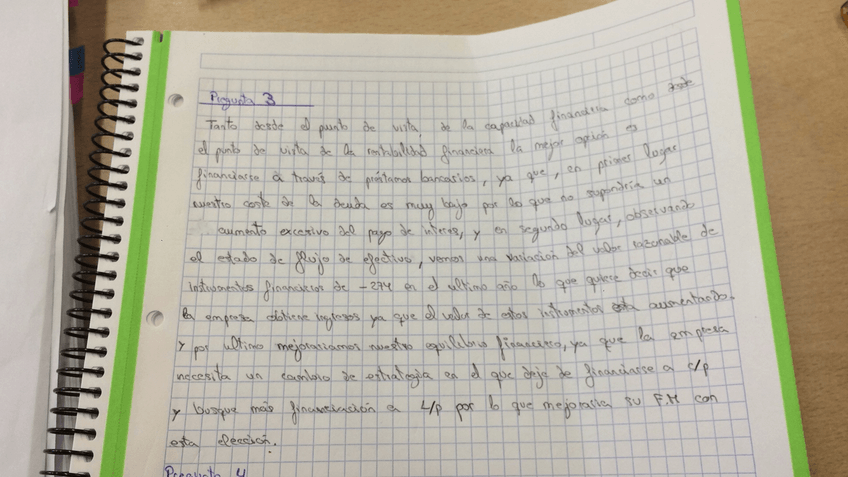 Pregunta 3
Tanto desde el punto de vista de la capacidad financiera como desde
el punto de vista de la rentabilidad financiera la mejor opción es
financiarse a través de préstamos bancarios, ya que, en primer lugar
nuestro coste de la deuda es muy bajo por lo que no supondría un
aumento excesivo del pago de interes, y en segundo lugar, observando
el estado de flujo de efectivo, vemos una variación del valor razonable de
instrumentos financieros de -274 en el ultimo año lo que quiere decir que
la empresa obtiene ingresos ya que el valor de estos instrumentos esta aumentando.
y por ultimo mejorariamos nuestro equilibrio financiero, ya que la empresa
necesita un cambio de estrategia en el que deje de financiarse a c/p
y busque más financiación a L/p por lo que mejoraria su F.M con
esta elección.
Pregunta 4